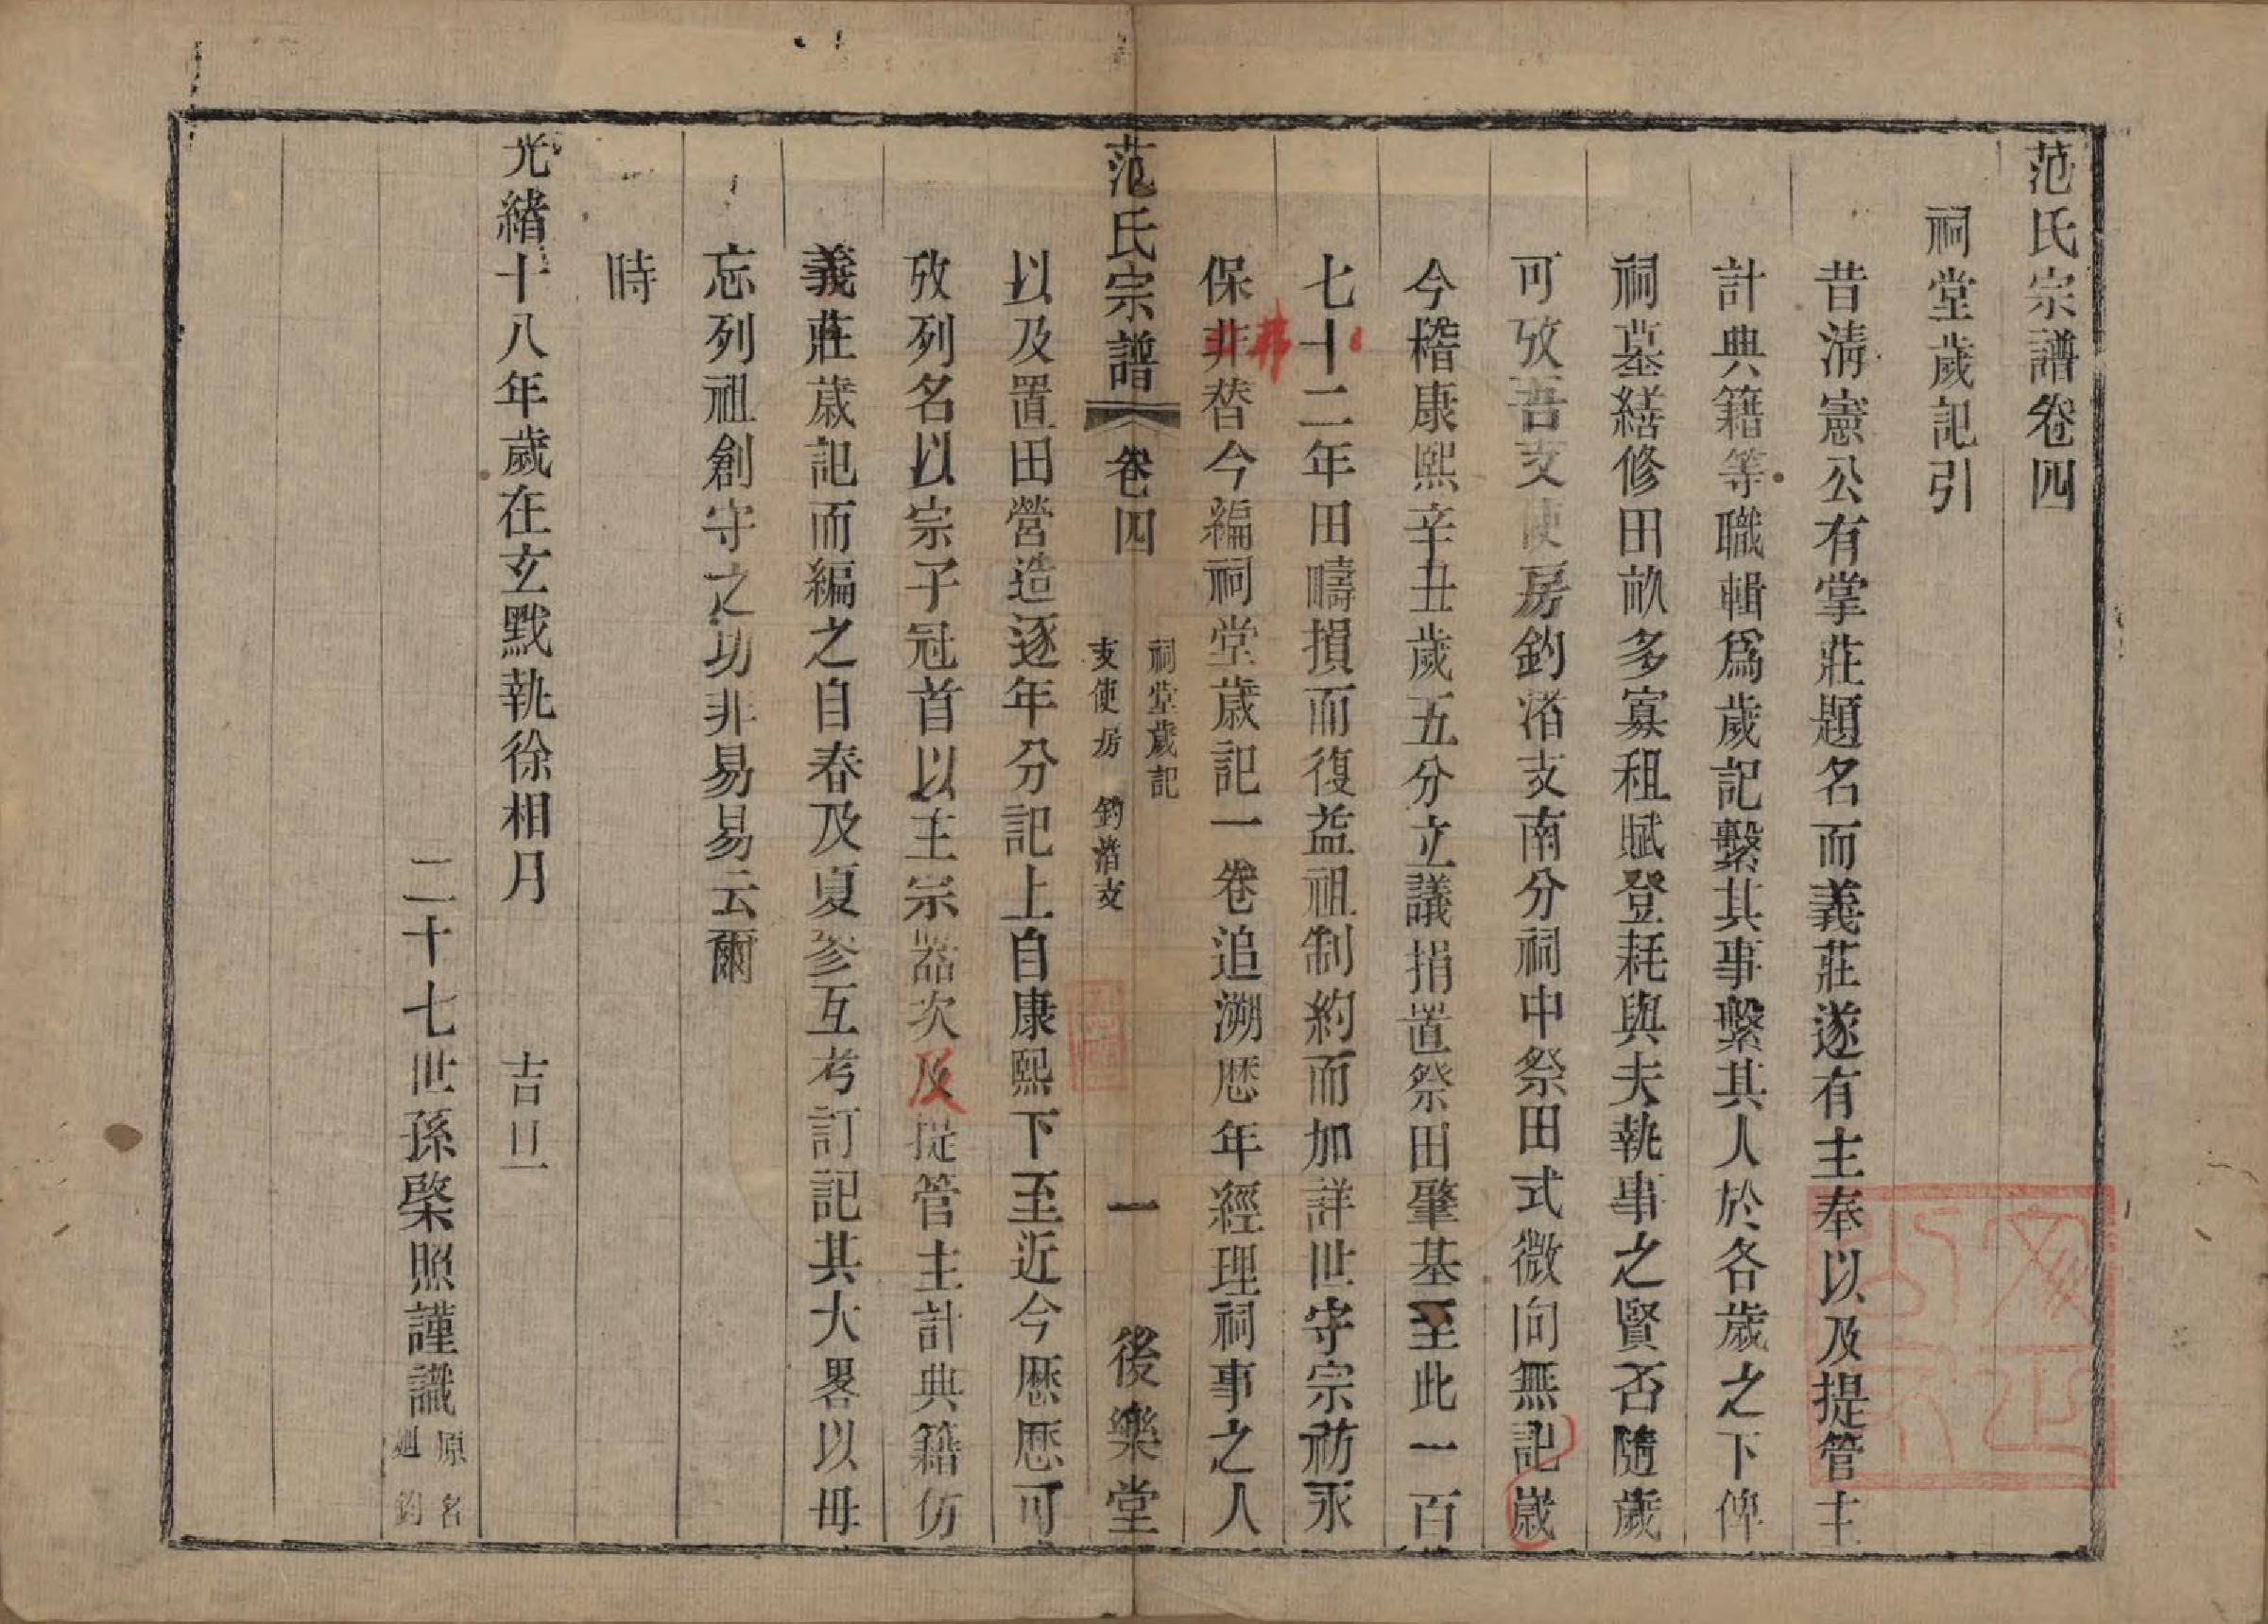 范氏宗譜卷四
祠堂歲記引
昔清憲公有掌莊題名而義莊遂有主奉以及提管主
計典籍等職輯爲歲記繫其事繫其人於各歲之下俾
祠墓繕修田畝多寡租賦登耗與夫執事之賢否隨歲
可攷吾支使房釣渚支南分祠中祭田式微向無記歲
今稽康熙辛丑歲五分立議捐置祭田肇基至此一百
七十二年田疇損而復益祖制約而加詳世守宗祊永
保非替今編祠堂歲記一卷追溯歷年經理祠事之人
弗
范氏宗譜 卷四 祠堂歲記 支使房 釣渚支 一 後樂堂
以及置田營造逐年分記上自康熙下至近今歷歷可
攷列名以宗子冠首以主宗器次及提管主計典籍仿
義莊歲記而編之自春及夏參互考訂記其大畧以毋
忘列祖創守之功非易易云爾
時
光緒十八年歲在玄黓執徐相月 吉旦
二十七世孫棨照謹識 原名廻鈞